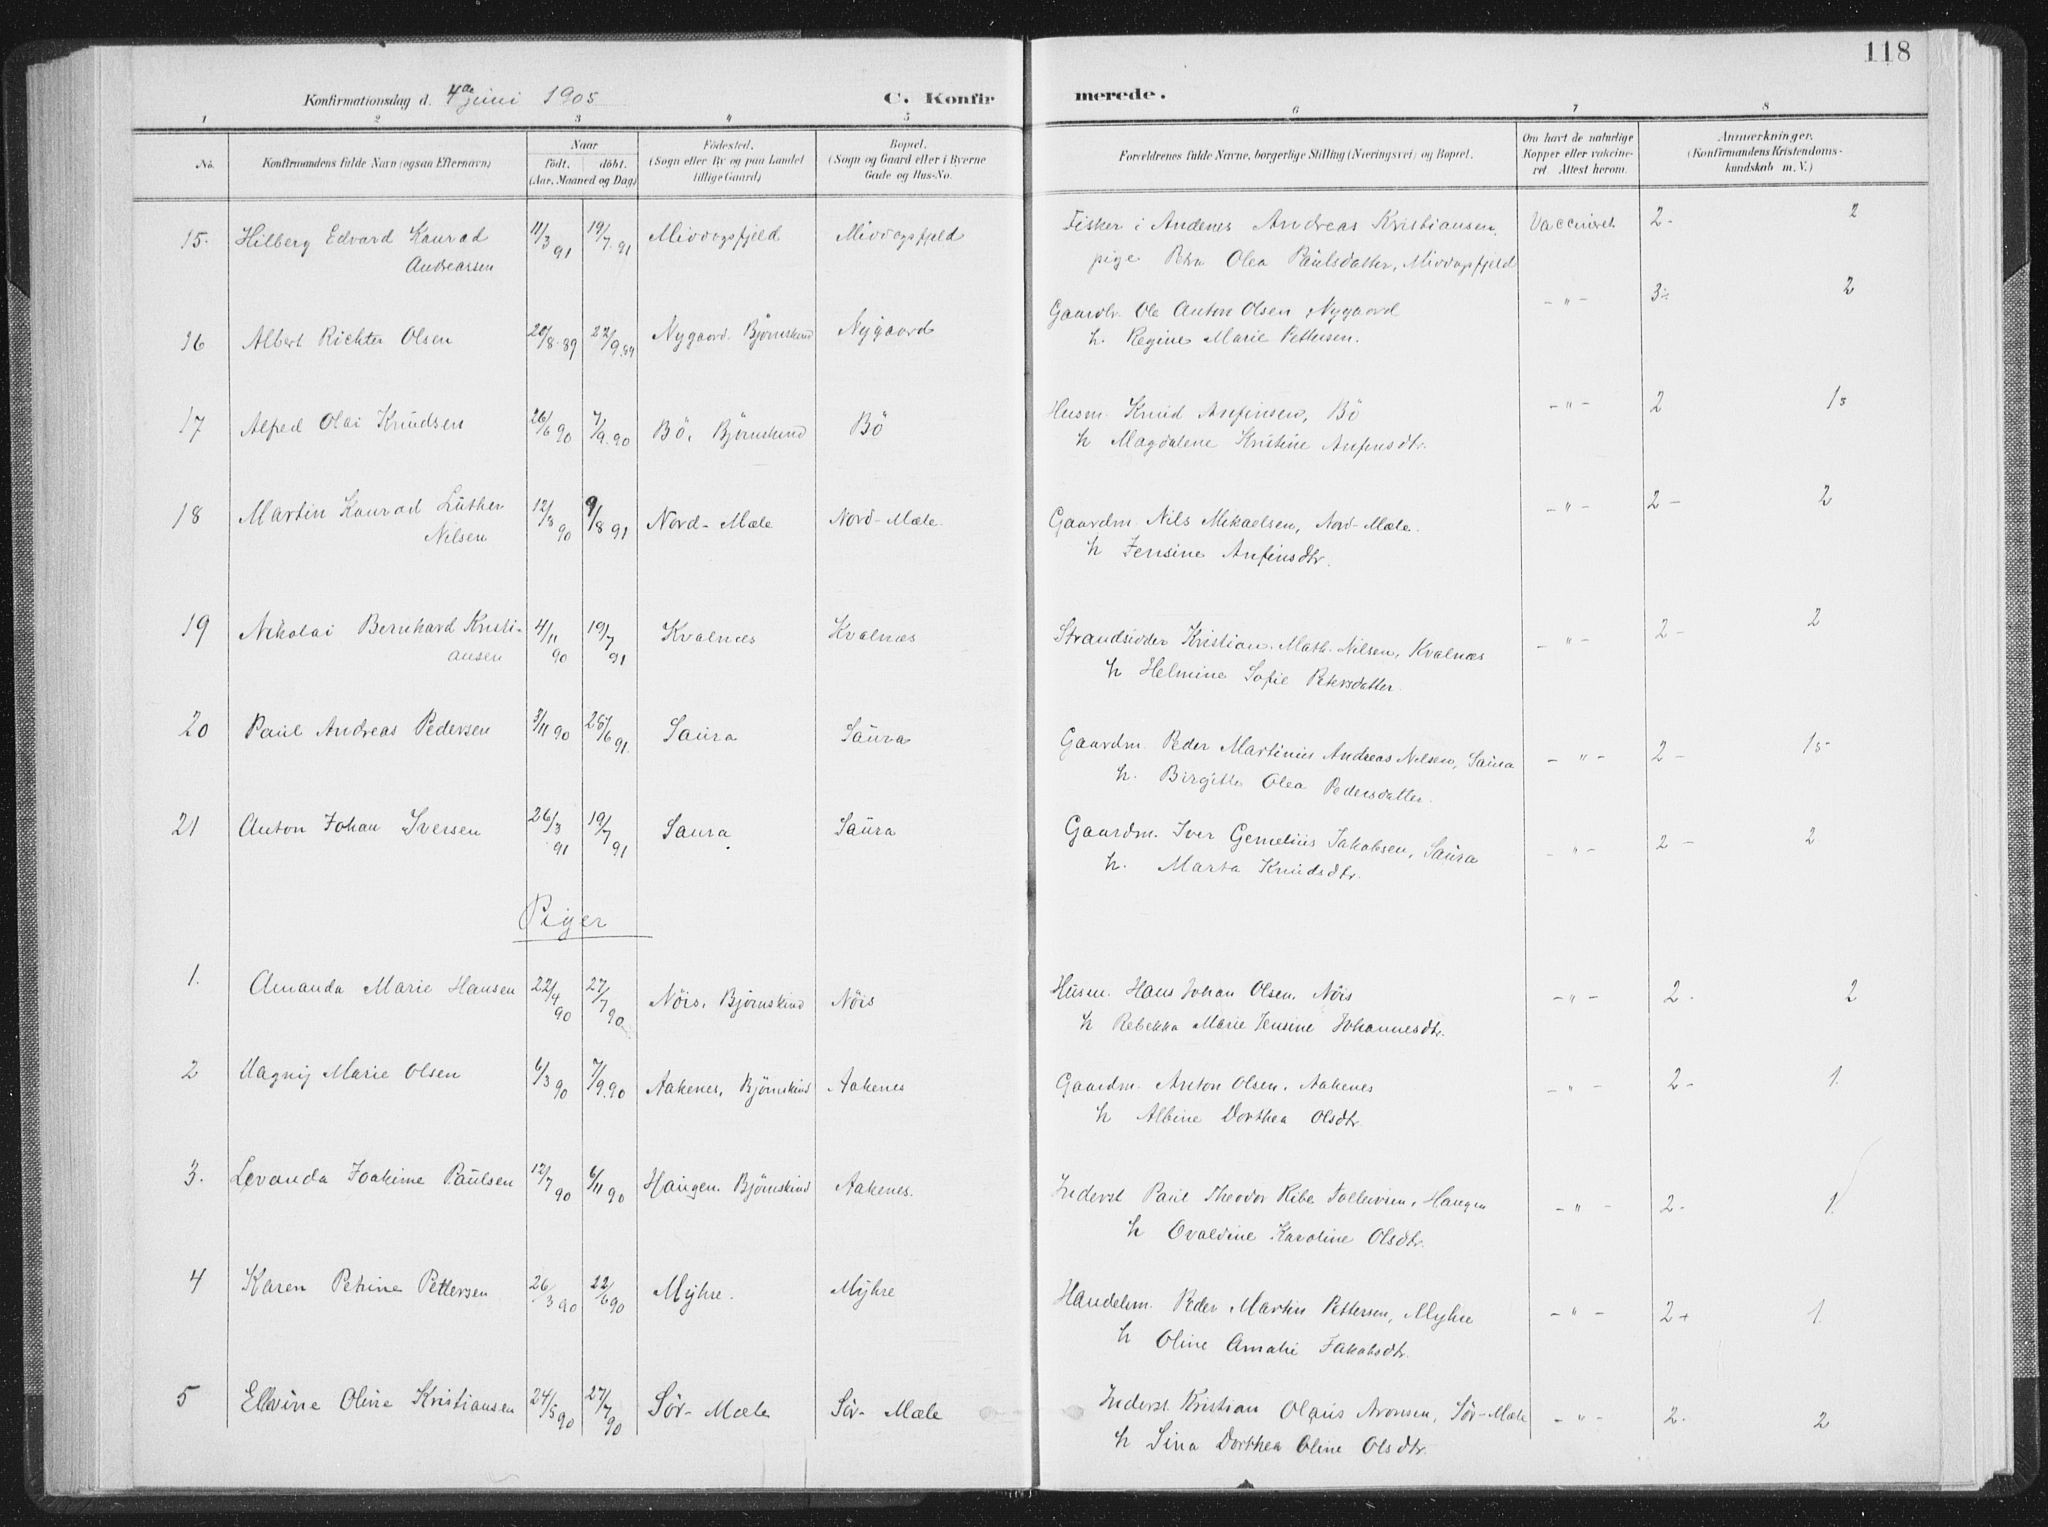 118
Konfirmationsdag d. 4de juni 1905 C. Konfir merede.
1 2 3 4 5 6 7 8
No. Konfirmandens fulde Navn (ogsaa Efternavn) Naar født. døbt. (Aar, Maaned og Dag) Fødested. (Sogn eller By og paa Landet tillige Gaard) Bopæl. (Sogn og Gaard eller i Byerne Gade og Hus-No. Forældrenes fulde Navne, borgerlige Stilling (Næringsvei) og Bopæl. Om havt de naturlige Kopper eller vaccineret Attest herom. Anmærkninger. (Konfirmandens Kristendomskundskab m. V.)
15. Hilberg Edvard Konrad 11/3 91 19/7. 91 Middagsfjeld Middagsfjeld Fisker i Andenes Andreas Kristiansen, Vaccineret 2- 2
Andreassen pige Petra Olea Paulsdatter, Middagsfjeld
16 Albert Richter Olsen 20/8. 89 22/9. 89 Nygaard. Bjørnskind Nygaard Gaardbr. Ole Anton Olsen Nygaard -"- 3÷ 2
h. Regine Marie Pettersen.
17 Alfred Olai Knudsen 26/6 90 7/9. 90 Bö, Bjørnskind Bö Husm. Knud Anfinsen, Bö -"- 2 1s
h Magdalene Kristine Anfinsdtr.
18 Martin Konrad Luther 12/3 90 9/8 91 Nord-Mæle Nord-Mæle. Gaardm. Nils Mikaelsen, Nord-Mæle. -"- 2- 2
Nilsen h Jensine Anfinsdtr.
19 Nikolai Bernhard Kristi- 4/11 90 19/7 91 Kvalnæs Kvalnæs Strandsidder Kristian Math. Nilsen, Kvalnæs -"- 2- 2
ansen h Helmine Sofie Petersdatter.
20 Paul Andreas Pedersen 3/11 90 25/6 91. Saura Saura Gaardm. Peder Martinus Andreas Nilsen, Saura -"- 2- 1s
h. Birgitte Olea Pedersdatter.
21 Anton Johan Iversen 26/3 91 19/7 91 Saura Saura Gaardm. Iver Gemelius Jakobsen, Saura -"- 2- 2
h. Marta Knudsdtr.
Piger
1. Amanda Marie Hansen 22/4 90 27/7 90 Nöis, Bjørnskind Nöis Husm. Hans Johan Olsen, Nöis -"- 2. 2
h Rebekka Marie Jensine Johannesdtr.
2 Dagny Marie Olsen 6/3 90 7/9. 90 Aakenes, Bjørnskind Aakenes Gaardm. Anton Olsen, Aakenes -"- 2- 1.
h Albine Dorthea Olsdtr.
3. Lovanda Joakime Paulsen 12/7 90 6/11 90 Haugen. Bjørnskind Aakenes. Inderst Paul Theodor Ribe Tollevsen, Haugen -"- 2- 1.
h Ovaldine Karoline Olsdtr.
4 Karen Petrine Pettersen 26/3 90 22/6 90 Myhre. Myhre Handelsm. Peder Martin Pettersen, Myhre -"- 2+ 1.
h Oline Amalie Jakobsdtr.
5 Ellvine Oline Kristiansen 24/5 90 27/7 90 Sör-Mæle Sör-Mæle Inderst Kristian Olaus Aronsen, Sör-Mæle -"- 2. 2
h Sina Dorthea Oline Olsdtr.